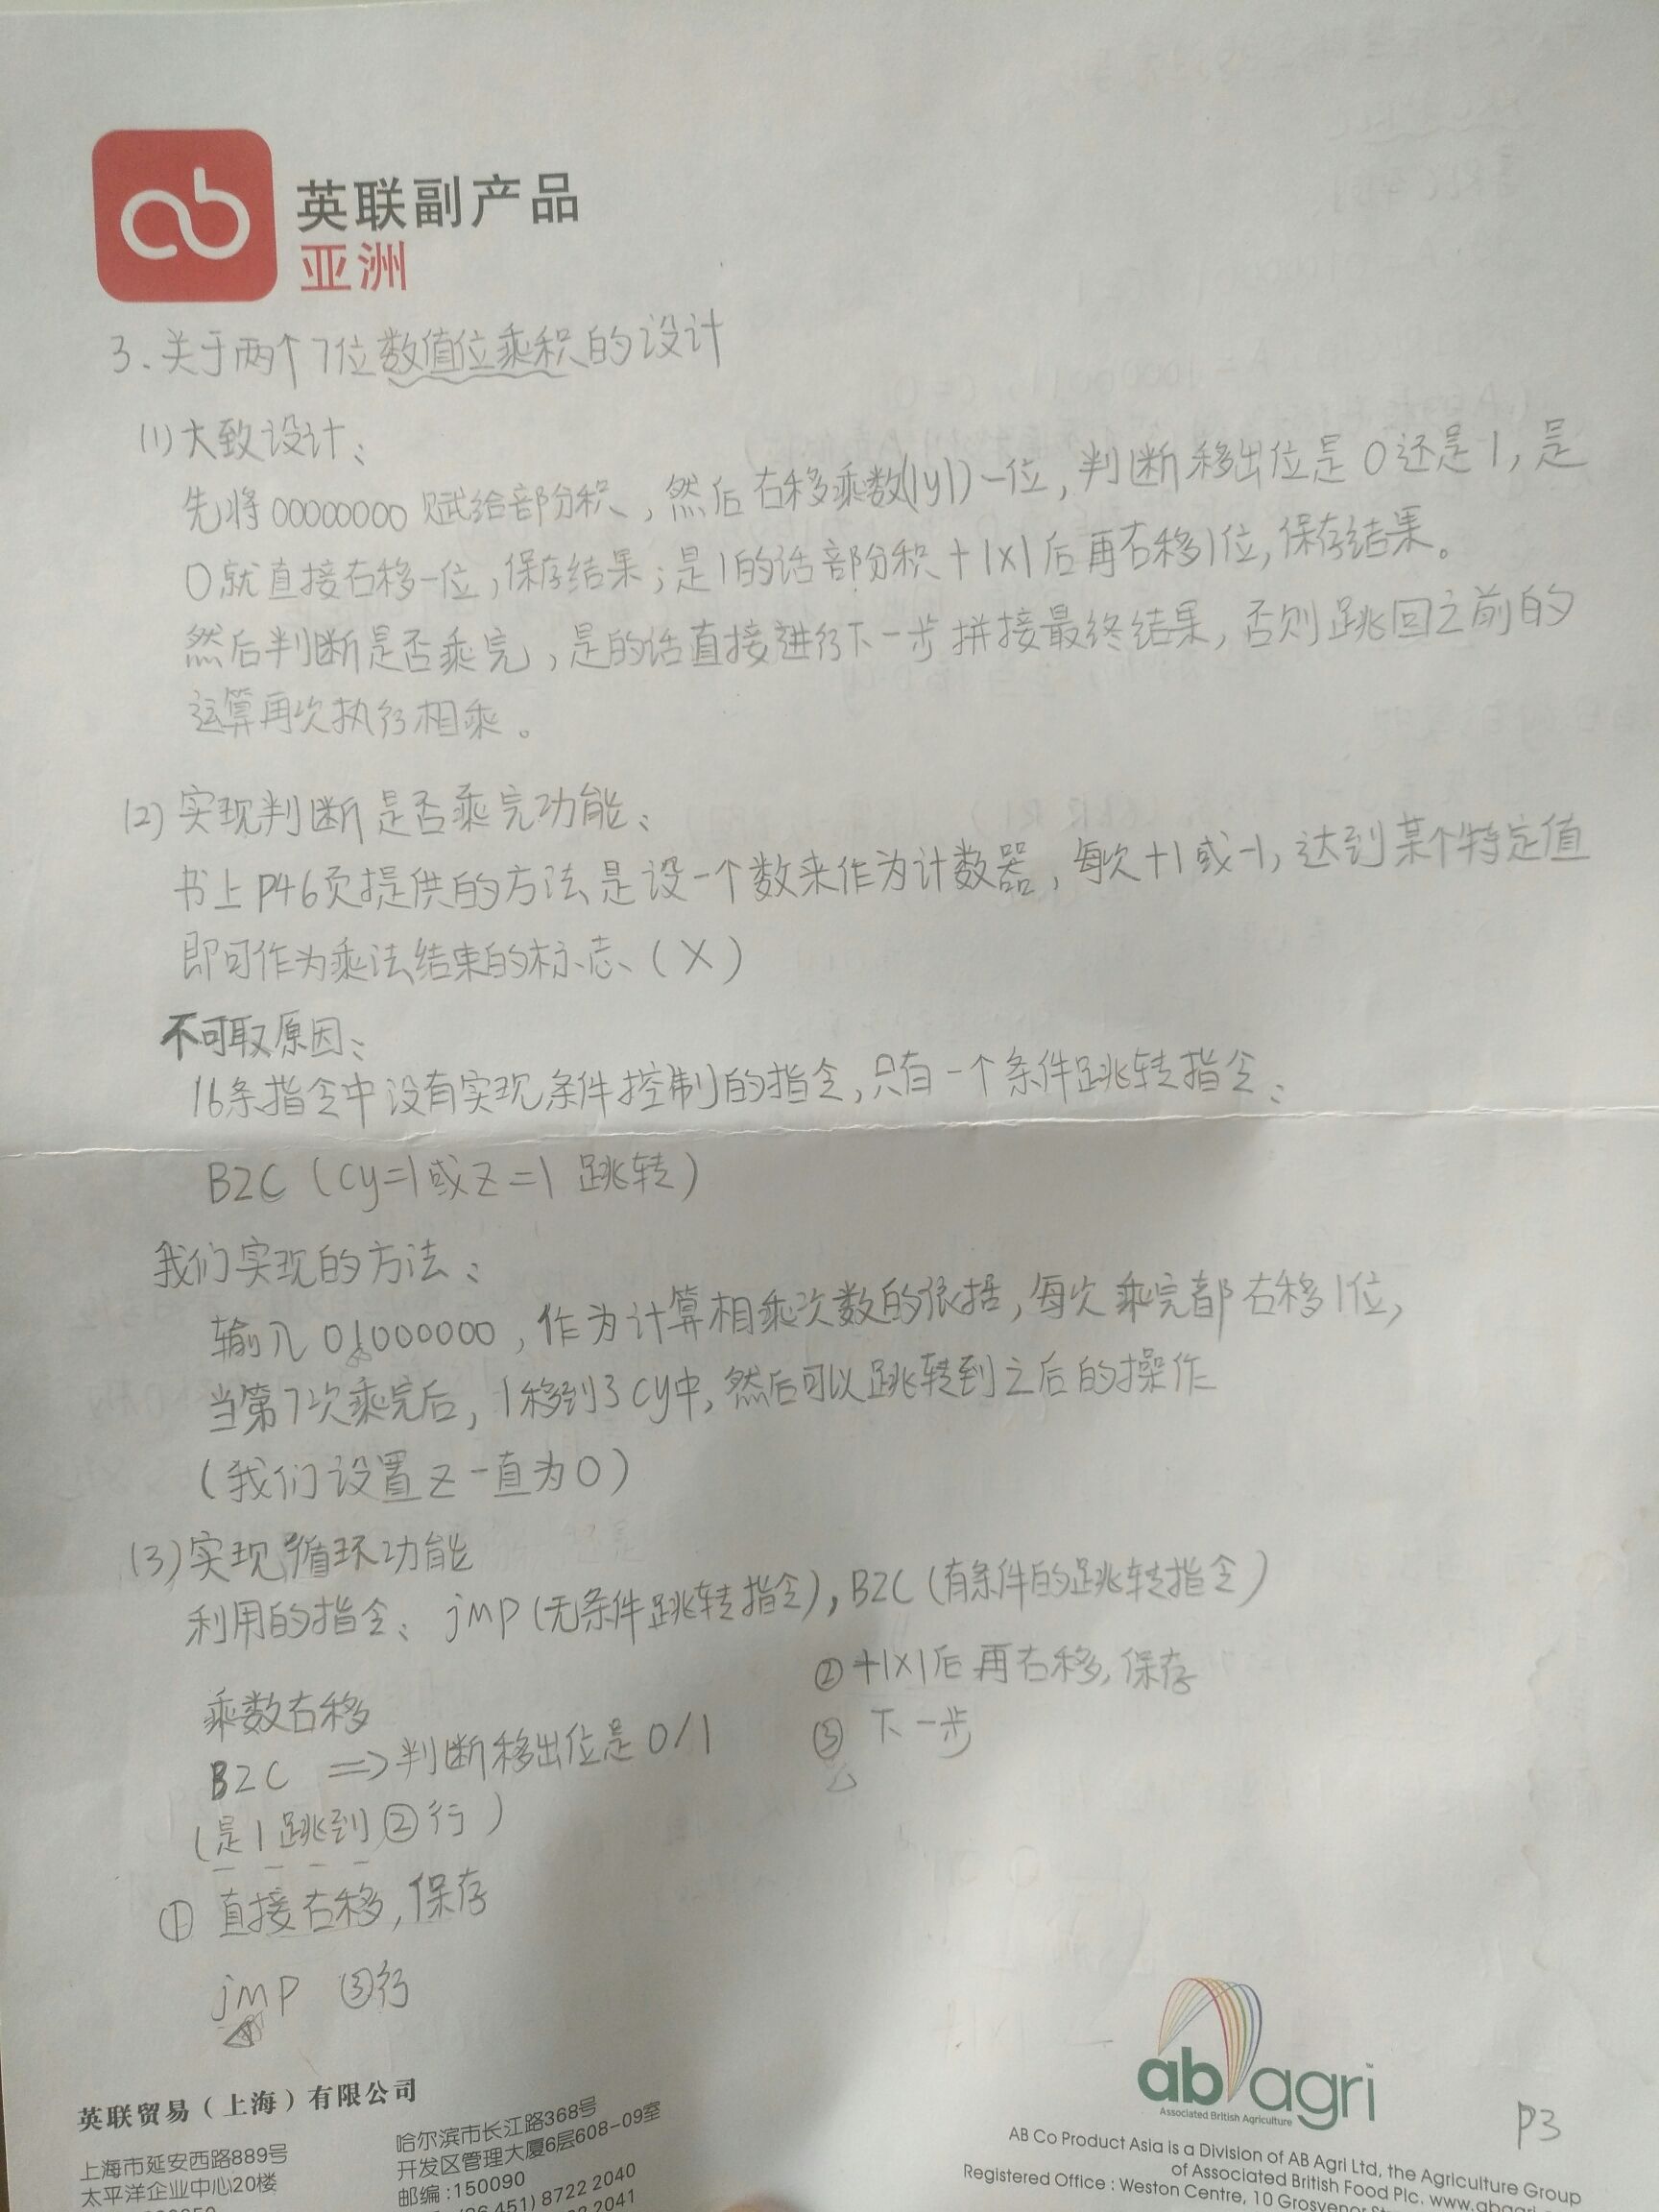 ab 英联副产品
亚洲
3、关于两个7位数值位乘积的设计
(1)大致设计:
先将00000000赋给部分积,然后右移乘数(|y|)一位,判断移出位是0还是1,是
0就直接右移一位,保存结果;是1的话部分积+|x|后再右移1位,保存结果。
然后判断是否乘完,是的话直接进行下一步拼接最终结果,否则跳回之前的
运算再次执行相乘。
(2)实现判断是否乘完功能:
书上P46页提供的方法是设一个数来作为计数器,每次+1或-1,达到某个特定值
即可作为乘法结束的标志、(X)
不可取原因:
16条指令中没有实现条件控制的指令,只有一个条件跳转指令:
BZC(cy=1或Z=1 跳转)
我们实现的方法:
输入01000000,作为计算相乘次数的依据,每次乘完都右移1位,
当第7次乘完后,1移到了cy中,然后可以跳转到之后的操作
(我们设置Z一直为0)
(3)实现循环功能
利用的指令:jmp(无条件跳转指令),BZC(有条件的跳转指令)
乘数右移
BZC ⇒判断移出位是0/1
(是1跳到②行)
① 直接右移,保存
jmp ③行
②+|x|后再右移,保存
③ 下一步
英联贸易(上海)有限公司
上海市延安西路889号
太平洋企业中心20楼
哈尔滨市长江路368号
开发区管理大厦6层608-09室
邮编:150090
451) 8722 2040
2041
ab agri™
Associated British Agriculture
AB Co Product Asia is a Division of AB Agri Ltd, the Agriculture Group
of Associated British Food Plc.
Registered Office : Weston Centre, 10
P3